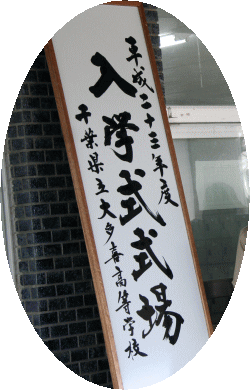 平成二十三年度
入学式式場
千葉県立大多喜高等学校